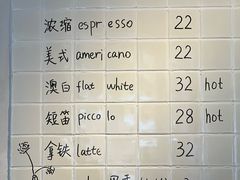 浓缩 espresso 22
美式 americano 22
澳白 flat white 32 hot
短笛 piccolo 28 hot
拿铁 latte 32